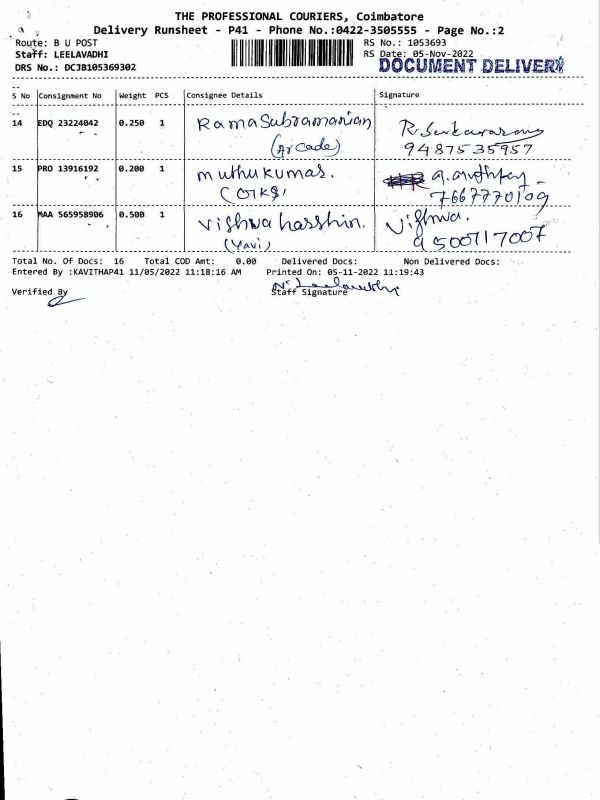 THE PROFESSIONAL COURIERS, Coimbatore
Delivery Runsheet - P41 - Phone No.:0422-3505555 - Page No.:2
Route: B U POST RS No.: 1053693
Staff: LEELAVADHI RS Date: 05-Nov-2022
DRS No.: DCJB105369302 DOCUMENT DELIVERY
S No Consignment No Weight PCS Consignee Details Signature
14 EDQ 23224042 0.250 1 Ramasubramanian
(Arcade) 9487535957
15 PRO 13916192 0.200 1 muthukumar.
7667770109
16 MAA 565958906 0.500 1 Vishwa hasshin. Vishwa.
(Yavi) 9500717007
Total No. Of Docs: 16 Total COD Amt: 0.00 Delivered Docs: Non Delivered Docs:
Entered By :KAVITHAP41 11/05/2022 11:18:16 AM Printed On: 05-11-2022 11:19:43
Verified By Staff Signature